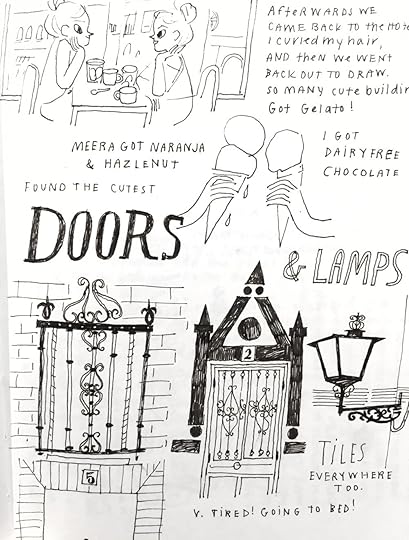 AFTERWARDS WE
CAME BACK TO THE
I CURLED MY HAIR,
AND THEN WE WENT
BACK OUT TO DRAW.
SO MANY CUTE
GOT GELATO!
MEERA GOT NARANJA
& HAZLENUT
I GOT
DAIRY FREE
CHOCOLATE
FOUND THE CUTEST
DOORS
& LAMPS
2
5
TILES
EVERYWHERE
TOO.
V. TIRED! GOING TO BED!